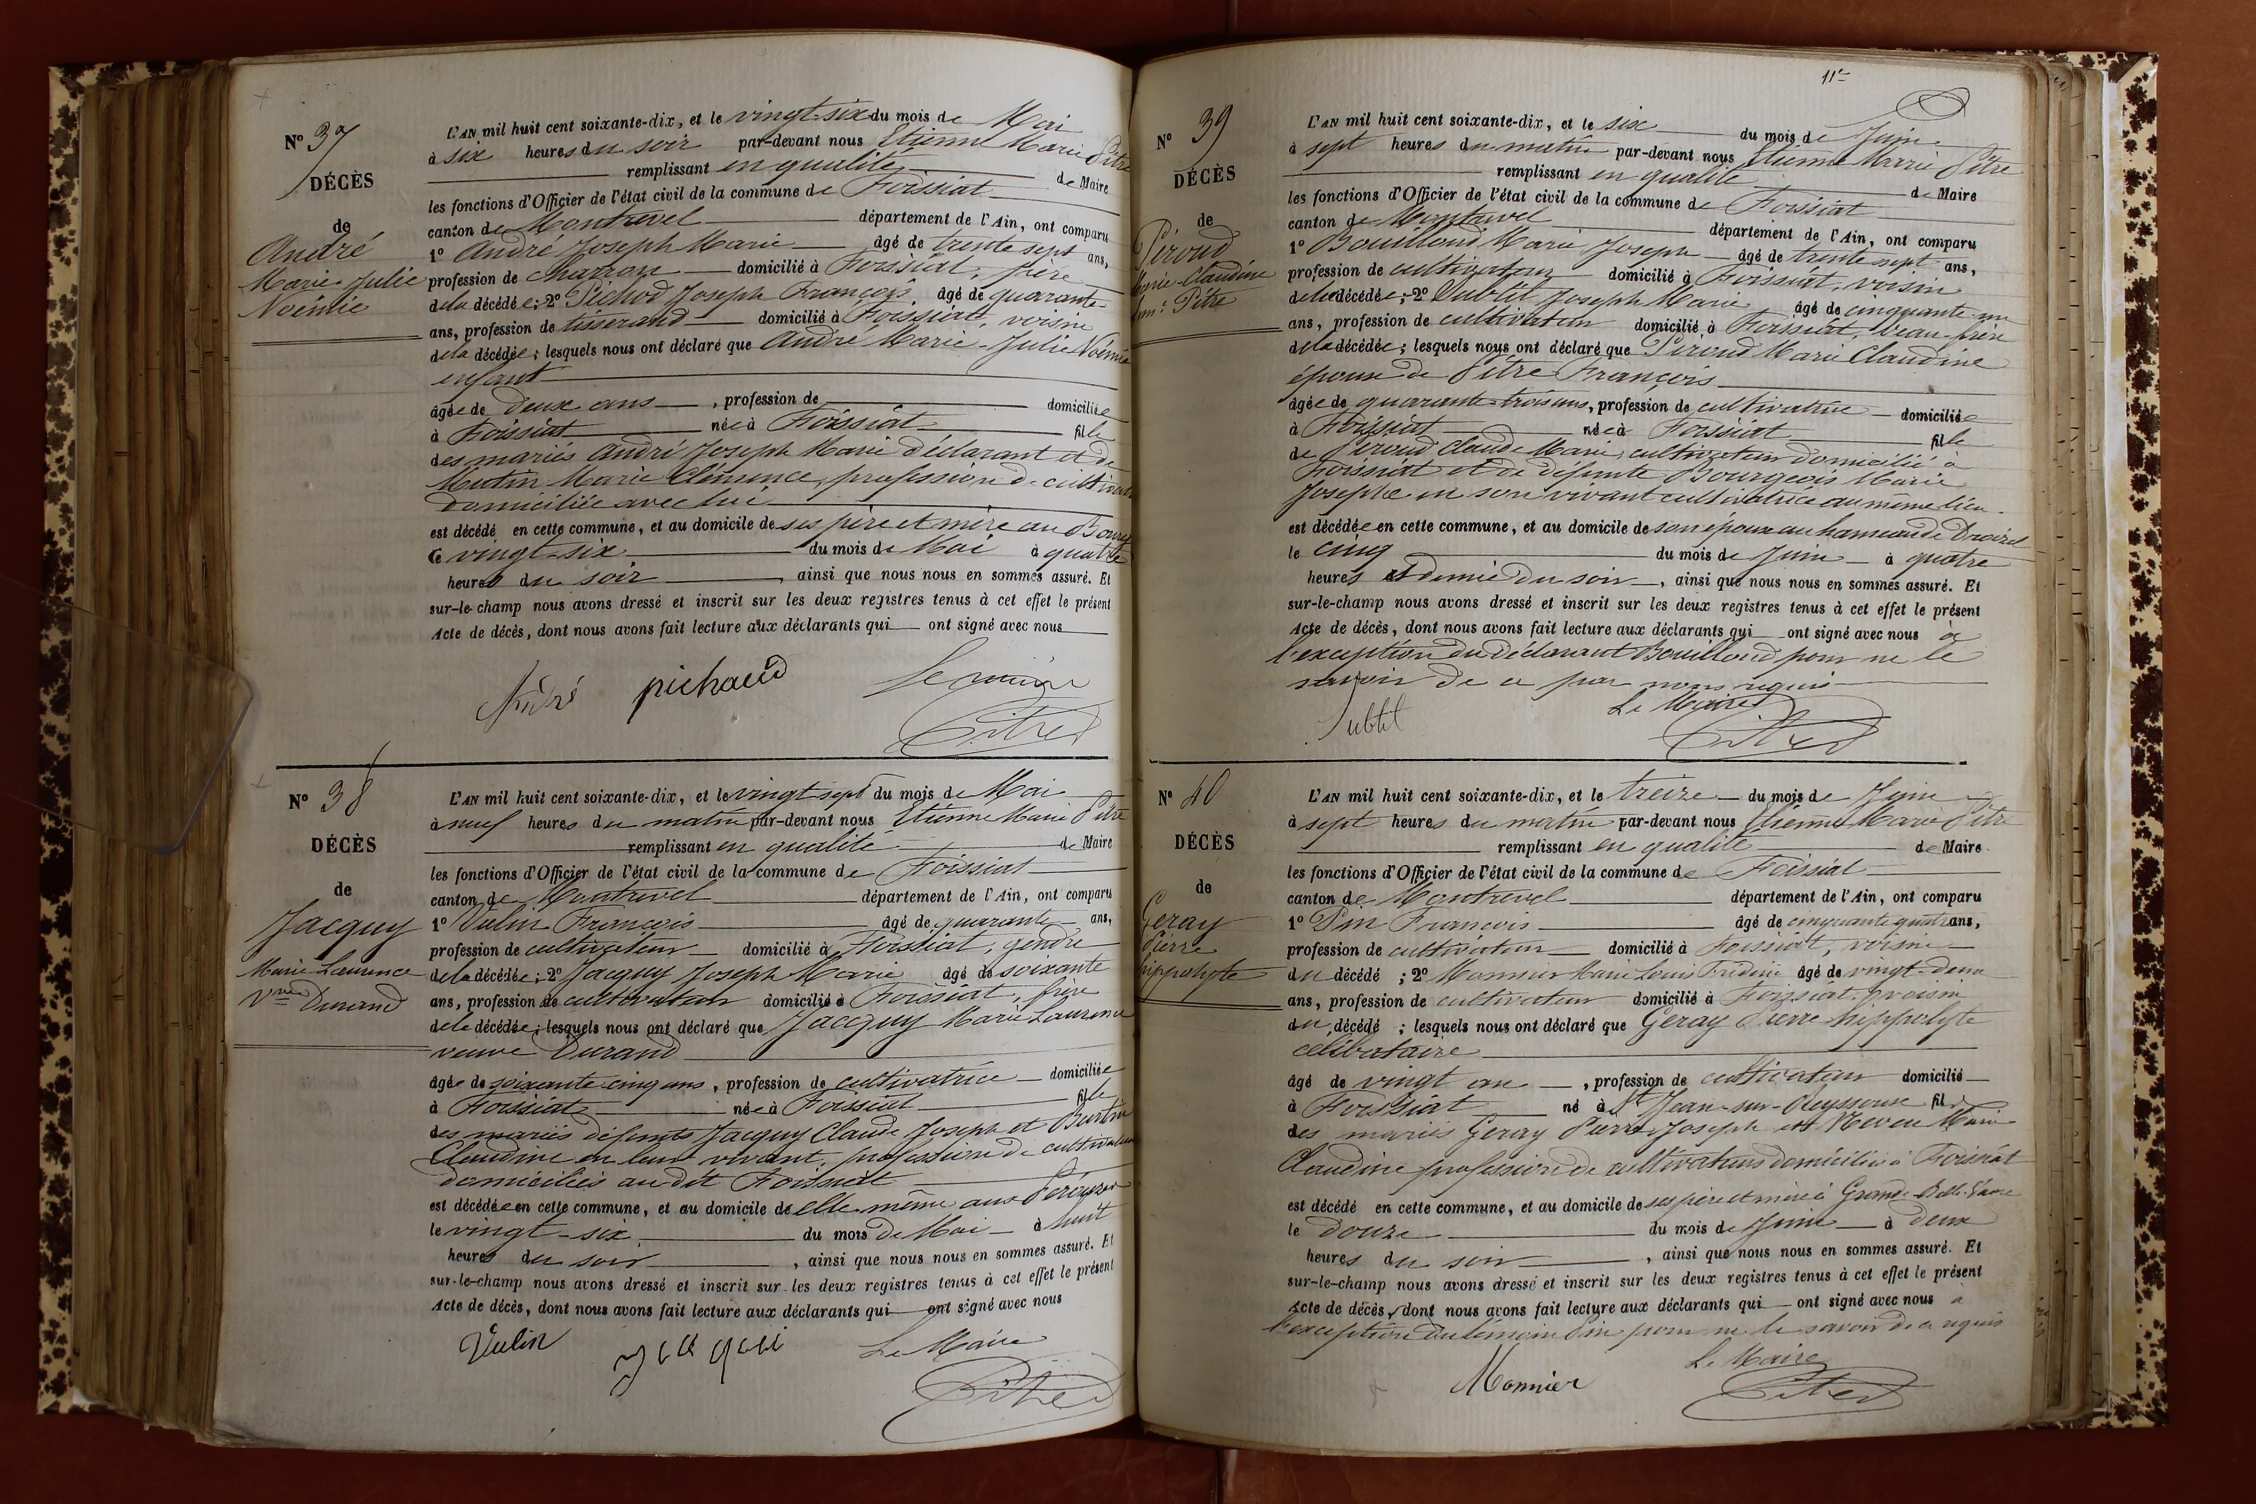 Nº 37
DÉCÈS
de
André
Marie Julie
Noémie
L'AN mil huit cent soixante-dix, et le vingt-six du mois de Mai
à six heures du soir par-devant nous Etienne Marie Pitre
remplissant en qualité de Maire
les fonctions d'Officier de l'état civil de la commune de Foissiat
canton de Montrevel département de l'Ain, ont comparu
1º André Joseph Marie âgé de trente sept ans,
profession de charron domicilié à Foissiat, père
de la décédée; 2º Pichod Joseph François, âgé de quarante
ans, profession de tisserand domicilié à Foissiat, voisin
de la décédée; lesquels nous ont déclaré que André Marie-Julie Noémie
enfant
âgée de deux ans, profession de domiciliée
à Foissiat née à Foissiat fille
des mariés André Joseph Marie déclarant et de
Marie Clémence, profession de
domiciliée avec lui
est décédé en cette commune, et au domicile de ses père et mère au Bourg
le vingt-six du mois de Mai à quatre
heures du soir, ainsi que nous nous en sommes assuré. Et
sur-le-champ nous avons dressé et inscrit sur les deux registres tenus à cet effet le présent
Acte de décès, dont nous avons fait lecture aux déclarants qui ont signé avec nous
André pichaud Le maire
Pitre
Nº 38
DÉCÈS
de
Jacquy
Marie Laurence
Vve Durand
L'AN mil huit cent soixante-dix, et le vingt sept du mois de Mai
à neuf heures du matin par-devant nous Etienne Marie Pitre
remplissant en qualité de Maire
les fonctions d'Officier de l'état civil de la commune de Foissiat
canton de Montrevel département de l'Ain, ont comparu
1º Vulin François âgé de quarante ans,
profession de cultivateur domicilié à Foissiat, gendre
de la décédée; 2º Jacquy Joseph Marie âgé de soixante
ans, profession de cultivateur domicilié à Foissiat, frère
de la décédée; lesquels nous ont déclaré que Jacquy Marie Laurence
veuve Durand
âgée de soixante cinq ans, profession de cultivatrice domiciliée
à Foissiat née à Foissiat fille
des mariés défunts Jacquy Claude Joseph et
Claudine en leur vivant, profession de cultivateurs
domiciliés au dit Foissiat
est décédée en cette commune, et au domicile de elle même aux
le vingt-six du mois de Mai à huit
heures du soir, ainsi que nous nous en sommes assuré. Et
sur-le-champ nous avons dressé et inscrit sur les deux registres tenus à cet effet le présent
Acte de décès, dont nous avons fait lecture aux déclarants qui ont signé avec nous
Vulin Le Maire
Pitre
Nº 39
DÉCÈS
de
Piroud
Marie-Claudine
Pitre
L'AN mil huit cent soixante-dix, et le six du mois de Juin
à sept heures du matin par-devant nous Etienne Marie Pitre
remplissant en qualité de Maire
les fonctions d'Officier de l'état civil de la commune de Foissiat
canton de Montrevel département de l'Ain, ont comparu
1º Bouilloud Marie Joseph âgé de trente sept ans,
profession de cultivateur domicilié à Foissiat, voisin
de la décédée; 2º Subtil Joseph Marie âgé de cinquante un
ans, profession de cultivateur domicilié à Foissiat, beau-frère
de la décédée; lesquels nous ont déclaré que Piroud Marie Claudine
épouse de Pitre François
âgée de quarante-trois ans, profession de cultivatrice domiciliée
à Foissiat née à Foissiat fille
de Piroud Claude Marie, cultivateur domicilié à
Foissiat et de défunte Bourgeois Marie
Josephe en son vivant cultivatrice au même lieu.
est décédée en cette commune, et au domicile de son époux au hameau de
le cinq du mois de Juin à quatre
heures et demie du soir, ainsi que nous nous en sommes assuré. Et
sur-le-champ nous avons dressé et inscrit sur les deux registres tenus à cet effet le présent
Acte de décès, dont nous avons fait lecture aux déclarants qui ont signé avec nous à
l'exception du déclarant Bouilloud pour ne le
savoir de ce par nous requis
Subtil Le Maire
Pitre
Nº 40
DÉCÈS
de
Geray
Pierre
hippolyte
L'AN mil huit cent soixante-dix, et le treize du mois de Juin
à sept heures du matin par-devant nous Etienne Marie Pitre
remplissant en qualité de Maire
les fonctions d'Officier de l'état civil de la commune de Foissiat
canton de Montrevel département de l'Ain, ont comparu
1º Pin François âgé de cinquante quatre ans,
profession de cultivateur domicilié à Foissiat, voisin
du décédé; 2º Monnier Marie Louis âgé de vingt-deux
ans, profession de cultivateur domicilié à Foissiat, voisin
du décédé; lesquels nous ont déclaré que Geray Pierre hippolyte
célibataire
âgé de vingt ans, profession de cultivateur domicilié
à Foissiat né à St Jean-sur-Reyssouze fils
des mariés Geray Pierre-Joseph et Neveu Marie
Claudine profession de cultivateurs domiciliés à Foissiat
est décédé en cette commune, et au domicile de ses père et mère à
le douze du mois de Juin à deux
heures du soir, ainsi que nous nous en sommes assuré. Et
sur-le-champ nous avons dressé et inscrit sur les deux registres tenus à cet effet le présent
Acte de décès, dont nous avons fait lecture aux déclarants qui ont signé avec nous à
l'exception du témoin Pin pour ne le savoir de ce requis
Monnier Le Maire
Pitre